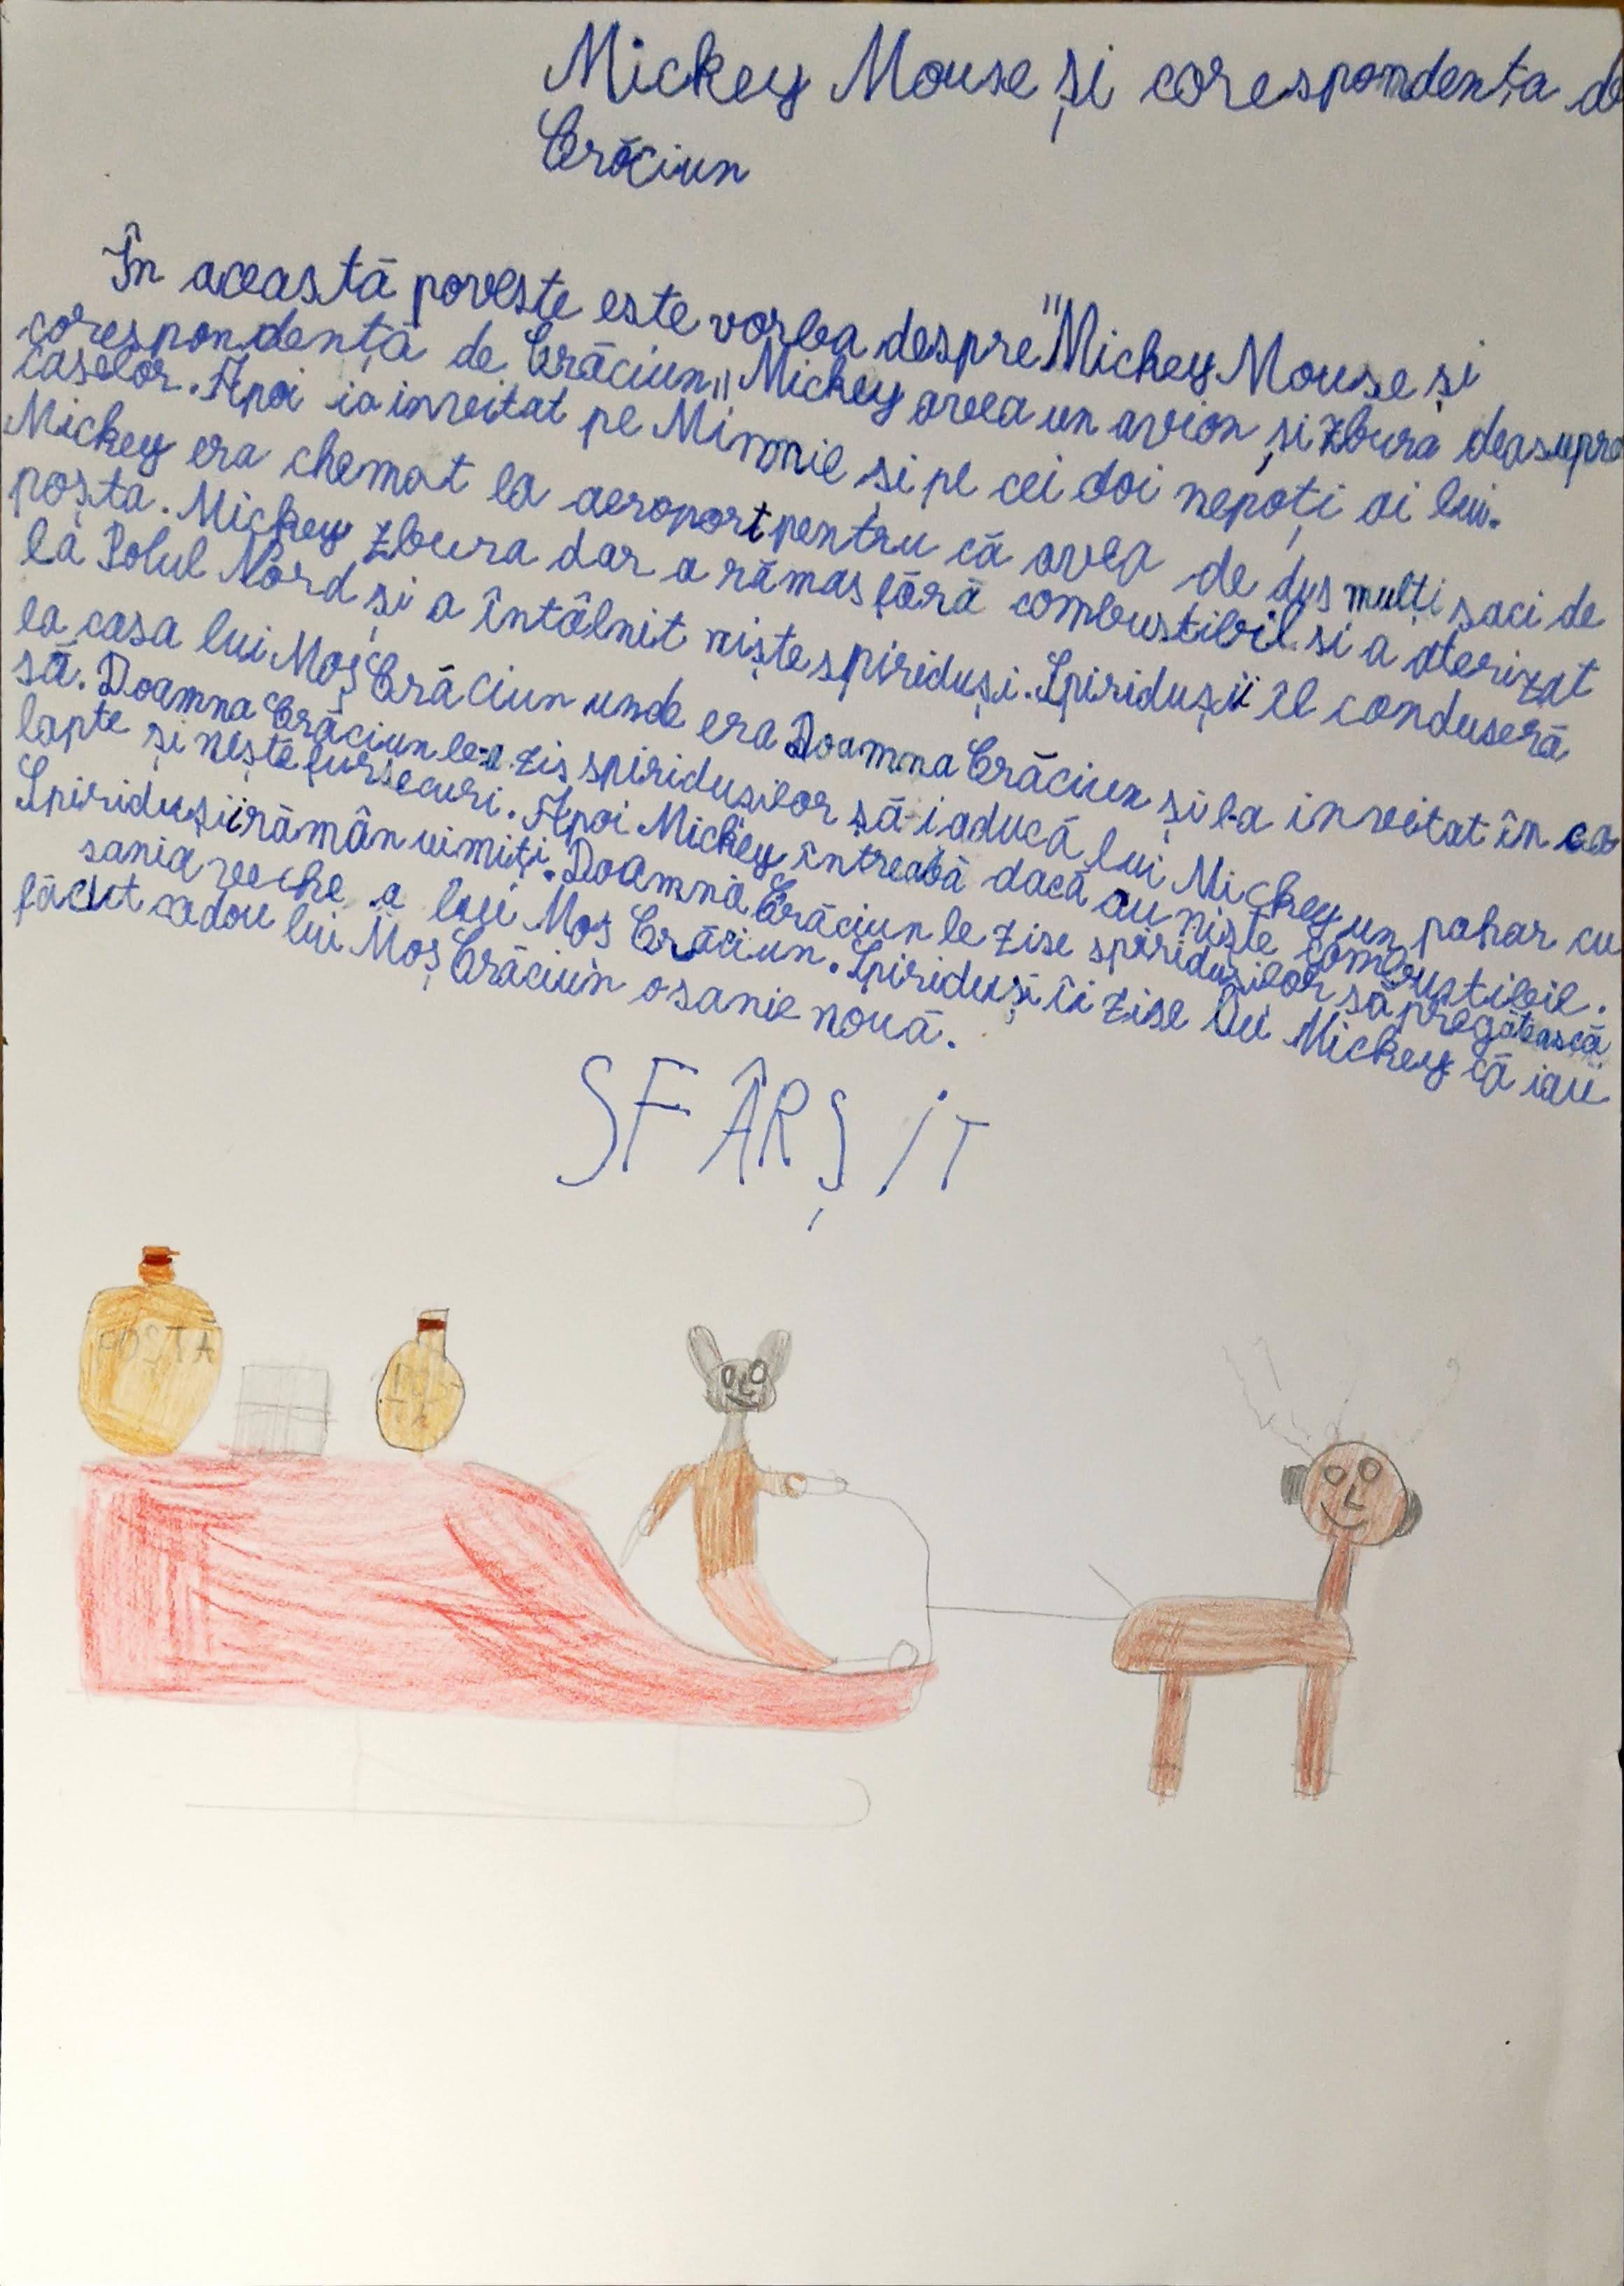 Mickey Mouse și corespondența de
Crăciun
În această poveste este vorba despre "Mickey Mouse și
corespondență de Crăciun" Mickey avea un avion și zbura deasupra
caselor. Apoi ia invitat pe Minnie și pe cei doi nepoți ai lui.
Mickey era chemat la aeroport pentru că avea de dus mulți saci de
poștă. Mickey zbura dar a rămas fără combustibil si a aterizat
la Polul Nord și a întâlnit niște spiriduși. Spiridușii îl conduseră
la casa lui Moș Crăciun unde era Doamna Crăciun și l-a invitat în ca
să. Doamna Crăciun le-a zis spiridusilor să-i aducă lui Mickey un pahar cu
lapte și nește fursecuri. Apoi Mickey întreabă dacă au niște combustibil.
Spiridușii rămân uimiți. Doamna Crăciun le zise spiridusilor să pregătească
sania veche a lui Moș Crăciun. Spiriduși îi zise lui Mickey că iau
făcut cadou lui Moș Crăciun o sanie nouă.
SFÂRȘIT
POȘTĂ